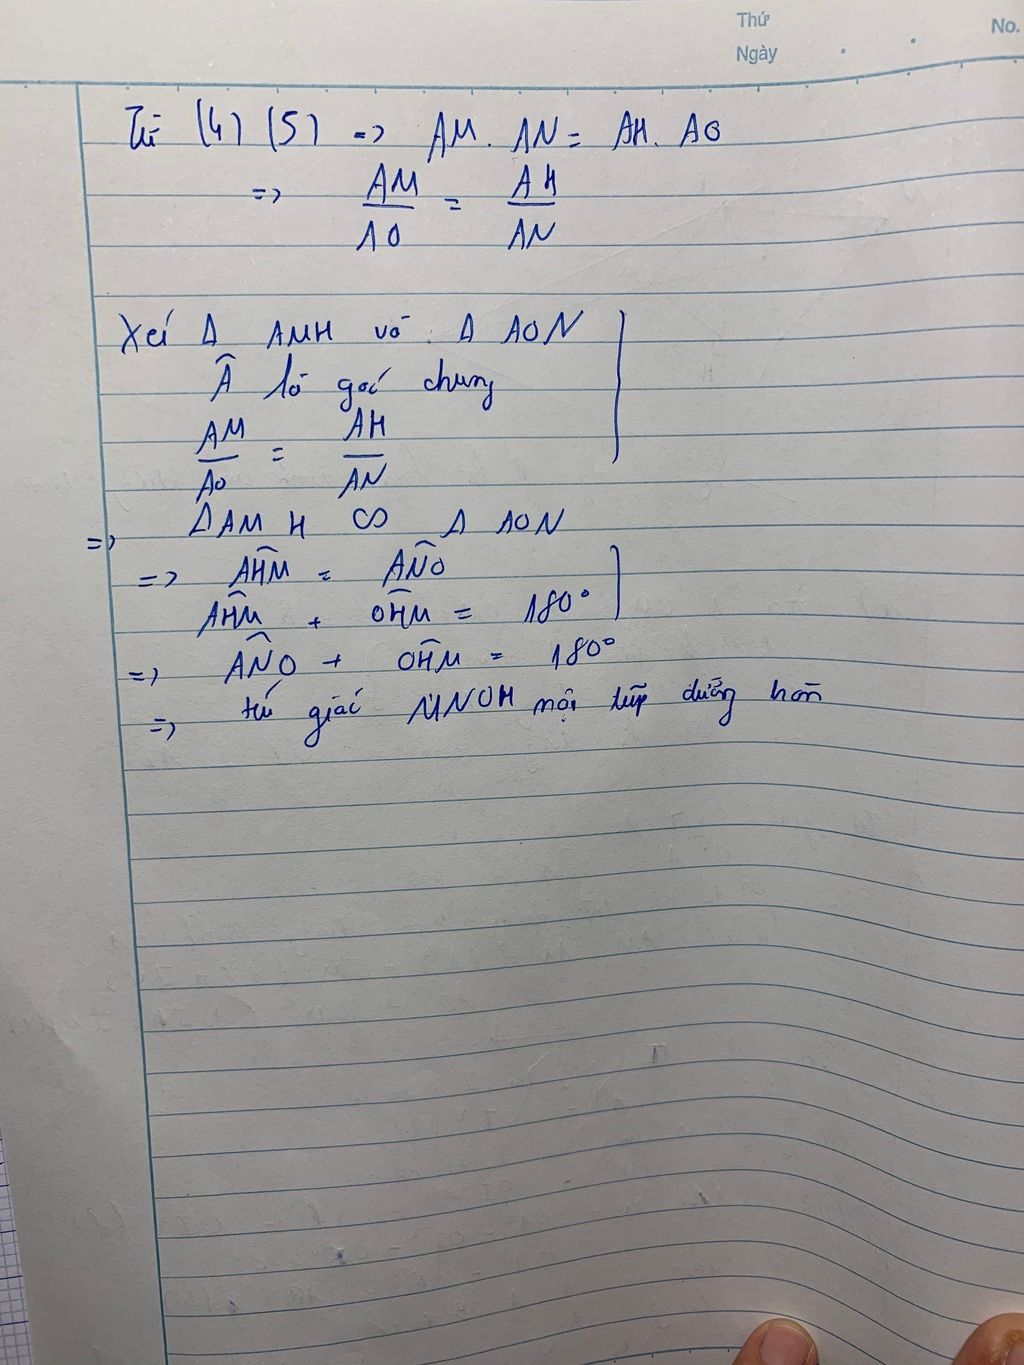 Thứ
No.
Ngày
Từ (4) (5) => AM. AN = AH. AO
=> AM/AO = AH/AN
Xét Δ AMH và Δ AON
Â là góc chung
AM/AO = AH/AN
=> ΔAMH ∽ Δ AON
=> AĤM = AN̂O
AĤM + OĤM = 180°
=> AN̂O + OĤM = 180°
=> tứ giác MNOH nội tiếp đường tròn